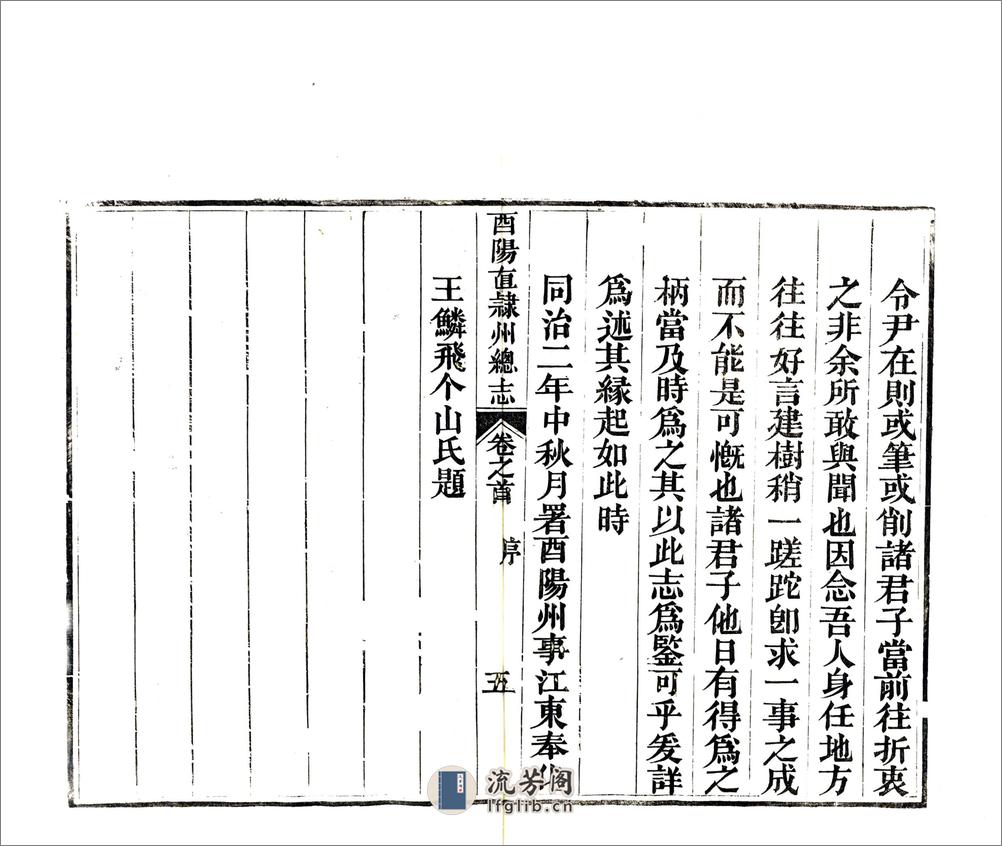 令尹在則或筆或削諸君子當前往折衷
之非余所敢與聞也因念吾人身任地方
往往好言建樹稍一蹉跎卽求一事之成
而不能是可慨也諸君子他日有得爲之
柄當及時爲之其以此志爲鑒可乎爰詳
爲述其緣起如此時
同治二年中秋月署酉陽州事江東奉
酉陽直隸州總志 卷之首 序 五
王鱗飛个山氏題
流芳阁
lfglib.cn